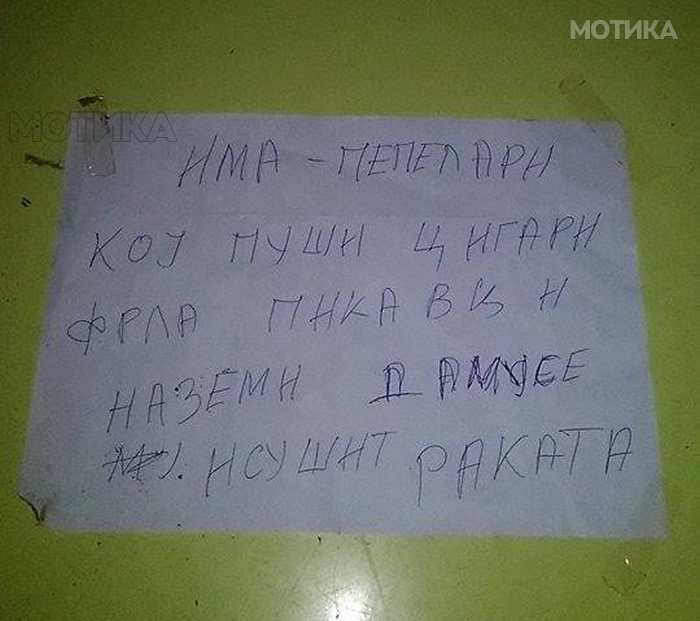 МОТИКА
МОТИКА
ИМА - ПЕПЕЛАРИ
КОЈ ПУШИ ЦИГАРИ
ФРЛА ПИКАВЦИ
НАЗЕМИ ДАМУСЕ
ИСУШИТ РАКАТА